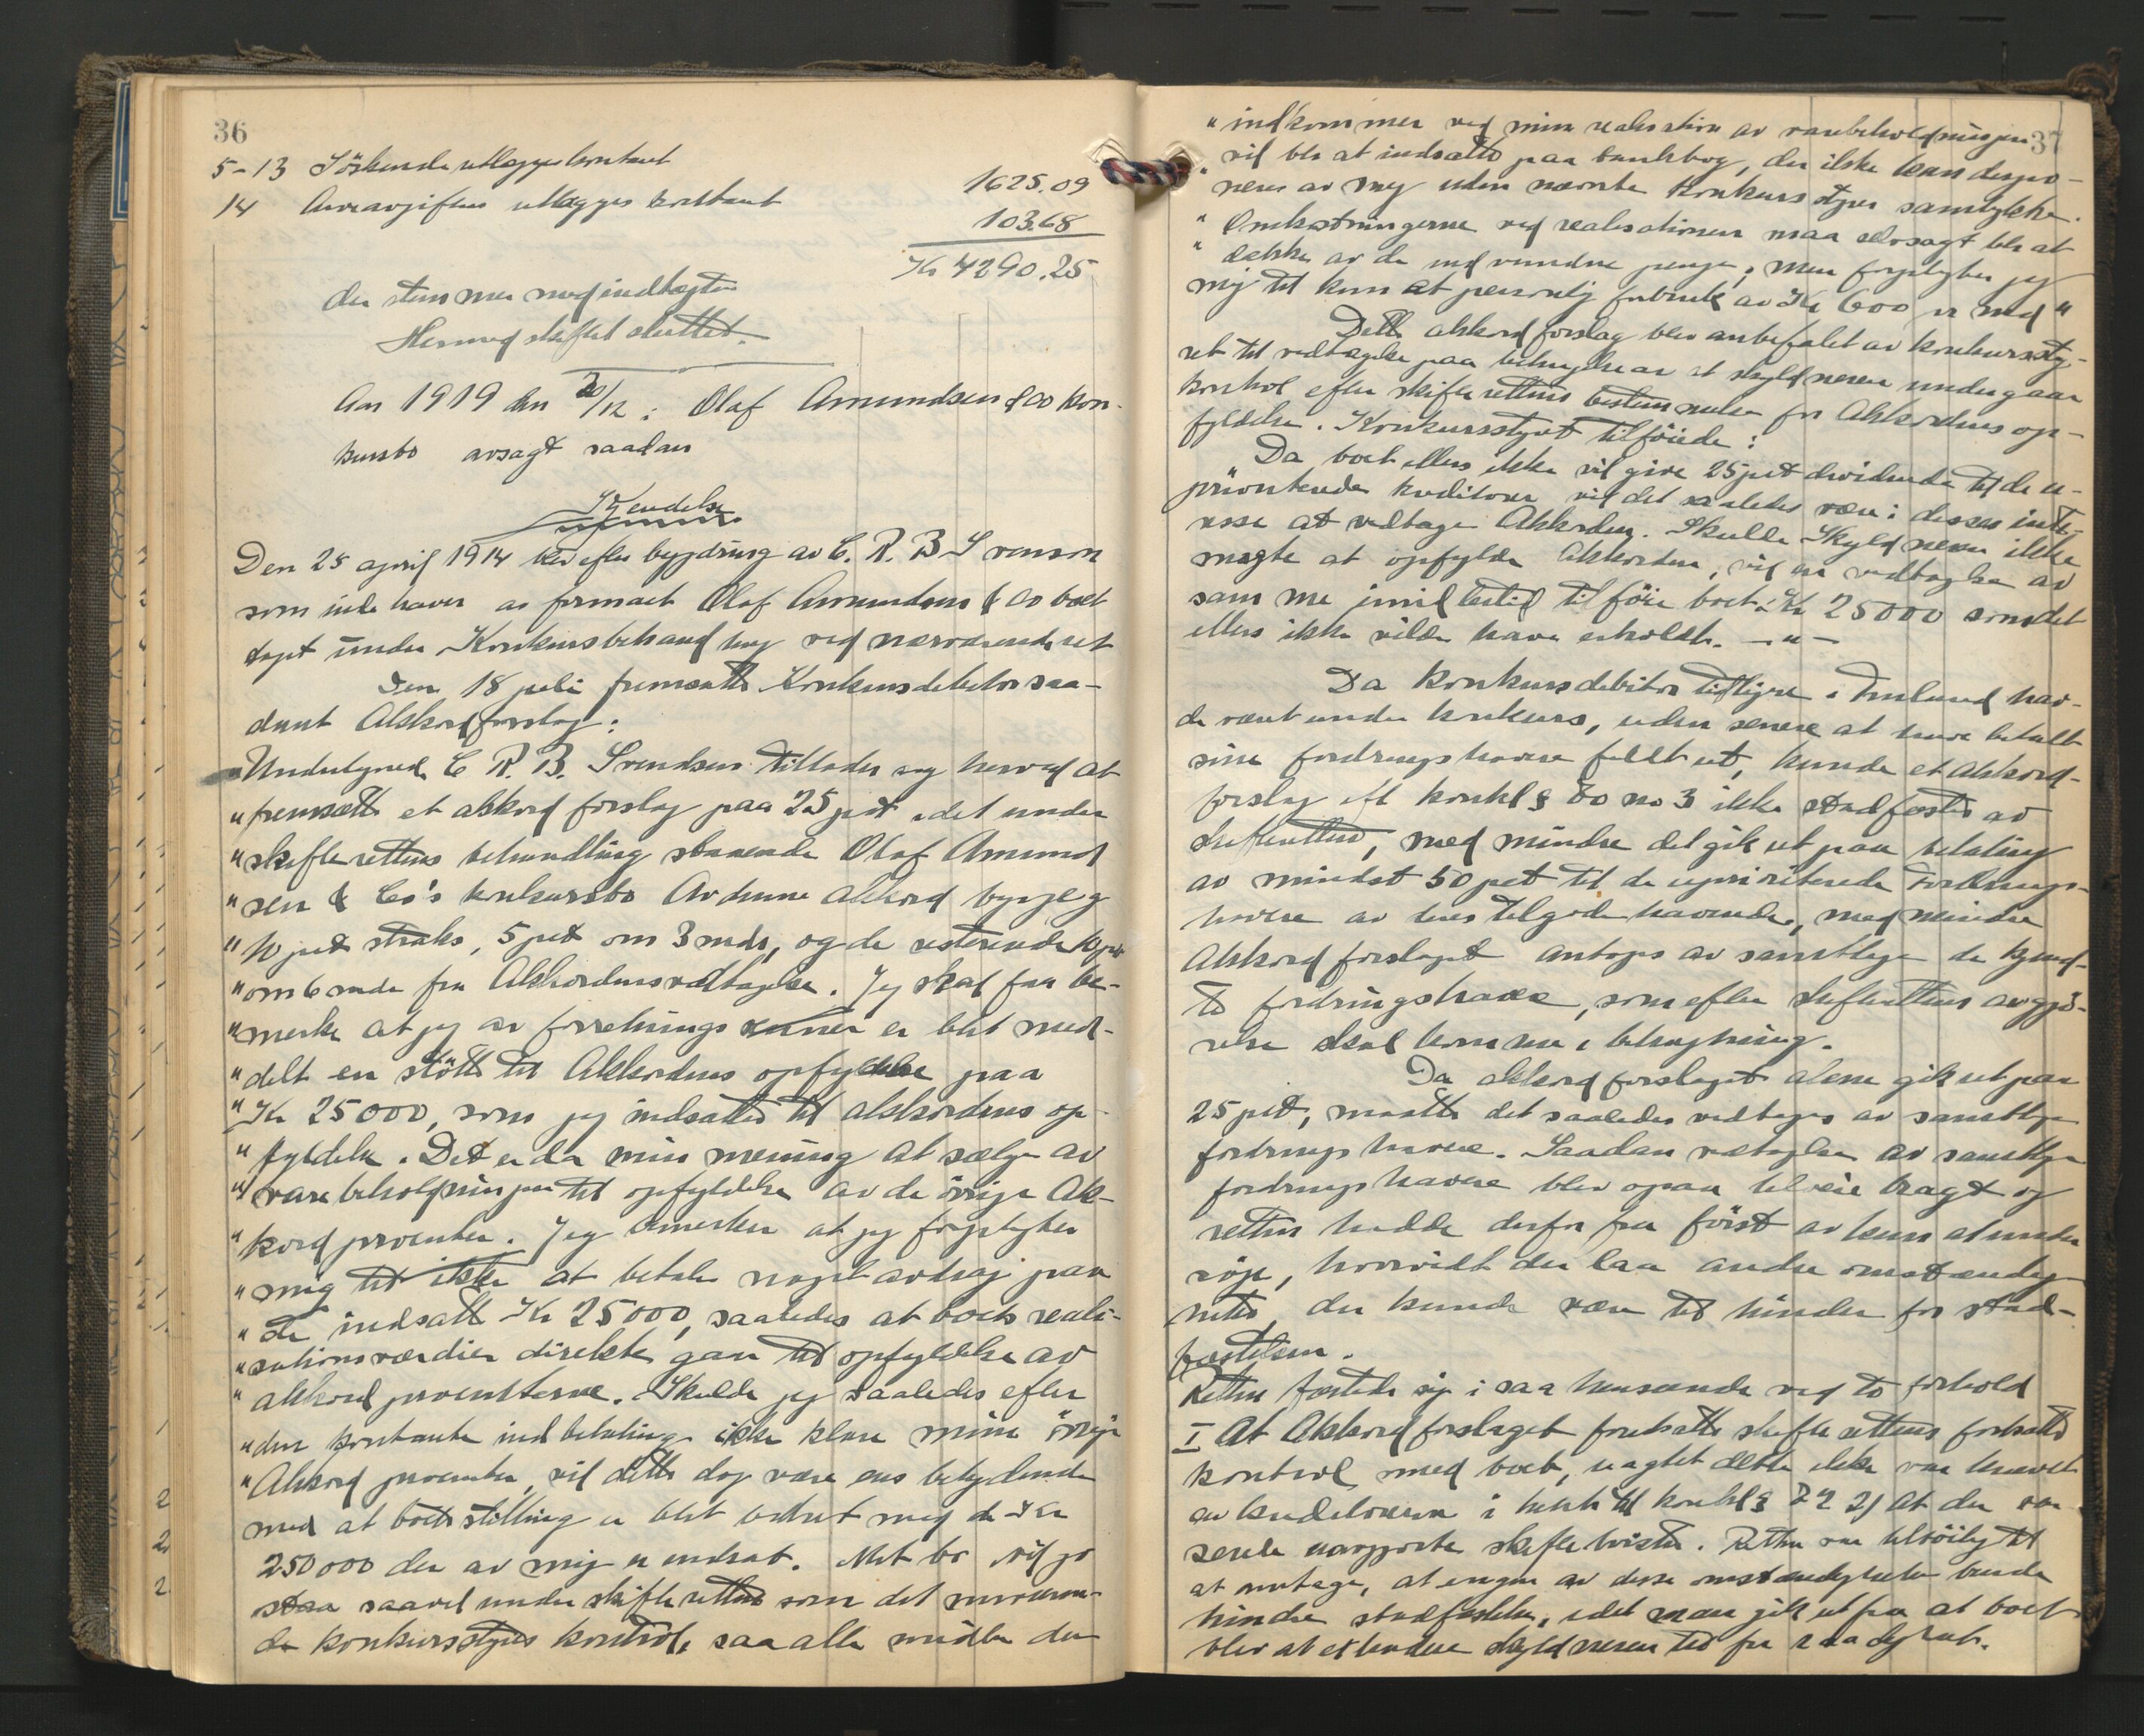 36
5-13 Söskende utlægges kontant 1625.09
14 Arveavgiften utlægges kontant 103.68
Kr 4290.25
der stemmer med indtægten
Hermed skiftet sluttet.
Aar 1919 den 20/12 i Olaf Amundsen & Co kon-
kursbo avsagt saadan
Kjendelse
Den 25 april 1914 blev efter begjæring av C. R. B. Svensen
som indehaver av firmaet Olaf Amundsen & Co boet
taget under Konkursbehandling ved nærværende ret
Den 18 juli fremsatte Konkursdebitor saa-
dant Akkordforslag:
"Undertegnede C. R. B. Svendsen tillader sig herved at
"fremsætte et akkord forslag paa 25 pct i det under
"skifterettens behandling staaende Olaf Amund
"sen & Co's konkursbo Av denne akkord byr jeg
"10 pct straks, 5 pct om 3 mdr, og de resterende 10 pct
"om 6 mdr fra Akkordens vedtagelse. Jeg skal faa be-
"merke at jeg av forretnings venner er blit med-
"delt en stötte til Akkordens opfyldelse paa
"Kr 25000, som jeg indsætter til akkordens op-
"fyldelse. Det er da min mening at sælge av
"varebeholdningen til opfyldelse av de övrige Ak-
"kordprocenter. Jeg bemerker at jeg forpligter
"mig til ikke at betale noget avdrag paa
"de indsatte Kr 25000, saaledes at boets reali-
"sationsværdier direkte gaar til opfyldelse av
"akkordprocenterne. Skulde jeg saaledes efter
"den kontante indbetaling ikke klare mine övrige
"Akkord procenter, vil dette dog være ens betydende
med at boets stilling er blit bedret med de Kr
250000 der av mig er indsat. Mit bo vil jo
staa saavel under skifterettens som det nuværen-
de konkursstyres kontrol, saa alle midler der
37
"indkommer ved min realisation av varebeholdningen
"vil bli at indsætte paa bankbog, der ikke kan dispo-
"neres av mig uden nævnte Konkursstyres samtykke.
"Omkostningerne ved realisationen maa selvsagt bli at
"dække av de indvundne penge, men forpligter jeg
mig til kun at personlig forbruk av Kr 600 pr md"
Dette akkordforslag blev anbefalet av konkursstyr-
ret til vedtagelse paa betingelse av at skyldneren undergaar
kontrol efter skifterettens bestemmelse for Akkordens op-
fyldelse. Konkursstyret tilföiede:
Da boet ellers ikke vil give 25 pct dividende til de u-
prioriterede kreditorer vil det saaledes være i disses inte-
resse at vedtage Akkorden. Skulle Skyldneren ikke
magte at opfylde Akkorden, vil en vedtagelse av
samme imidlertid tilföre boet Kr 25000 som det
ellers ikke vilde have erholdt. -"-
Da konkursdebitor tidligere i havd-
de været under konkurs, uden senere at have betalt
sine fordringshavere fuldt ut, kunde et akkord-
forslag eft konkl § 80 no 3 ikke stadfæstes av
skifteretten, med mindre det gik ut paa betaling
av mindst 50 pct til de uprioriterede Fordrings-
havere av deres tilgodehavende, med mindre
Akkordforslaget antages av samtlige de kjend-
te fordringshavere, som efter skifterettens avgjö-
relse skal komme i betragtning.
Da akkordforslaget alene gik ut paa
25 pct, maatte det saaledes vedtages av samtlige
fordringshavere. Saadan vedtagelse av samtlige
fordringshavere blev ogsaa tilveie bragt og
retten hadde derfor fra först av kun at under
söge, hvorvidt der laa andre omstændig-
heter, der kunde være til hinder for stad-
fæstelsen.
Retten fæstede sig i saa henseende ved to forhold
I At Akkordforslaget forutsatte skifterettens fortsatte
kontrol med boet, uagtet dette ikke var krævet
av kreditorerne i henh til konkl § 2) At der var
uavgjorte skifte tvister. Retten var tilböielig til
at antage, at ingen av disse omstændigheter kunde
hindre stadfæstelse, idet man gik ut fra at boet
blev at extradere skyldneren til fri raadighet.